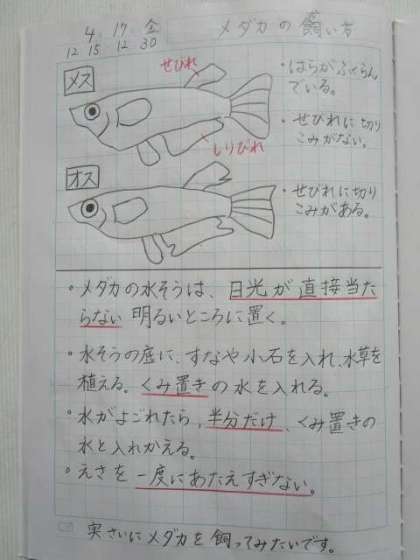 4 17 金
12 15 12 30
メダカの飼い方
メス
せびれ
・はらがふくらん
でいる。
・せびれに切り
こみがない。
しりびれ
オス
・せびれに切り
こみがある。
・メダカの水そうは、日光が直接当た
らない明るいところに置く。
・水そうの底に、すなや小石を入れ、水草を
植える。くみ置きの水を入れる。
・水がよごれたら、半分だけ、くみ置きの
水と入れかえる。
・えさを一度にあたえすぎない。
実さいにメダカを飼ってみたいです。